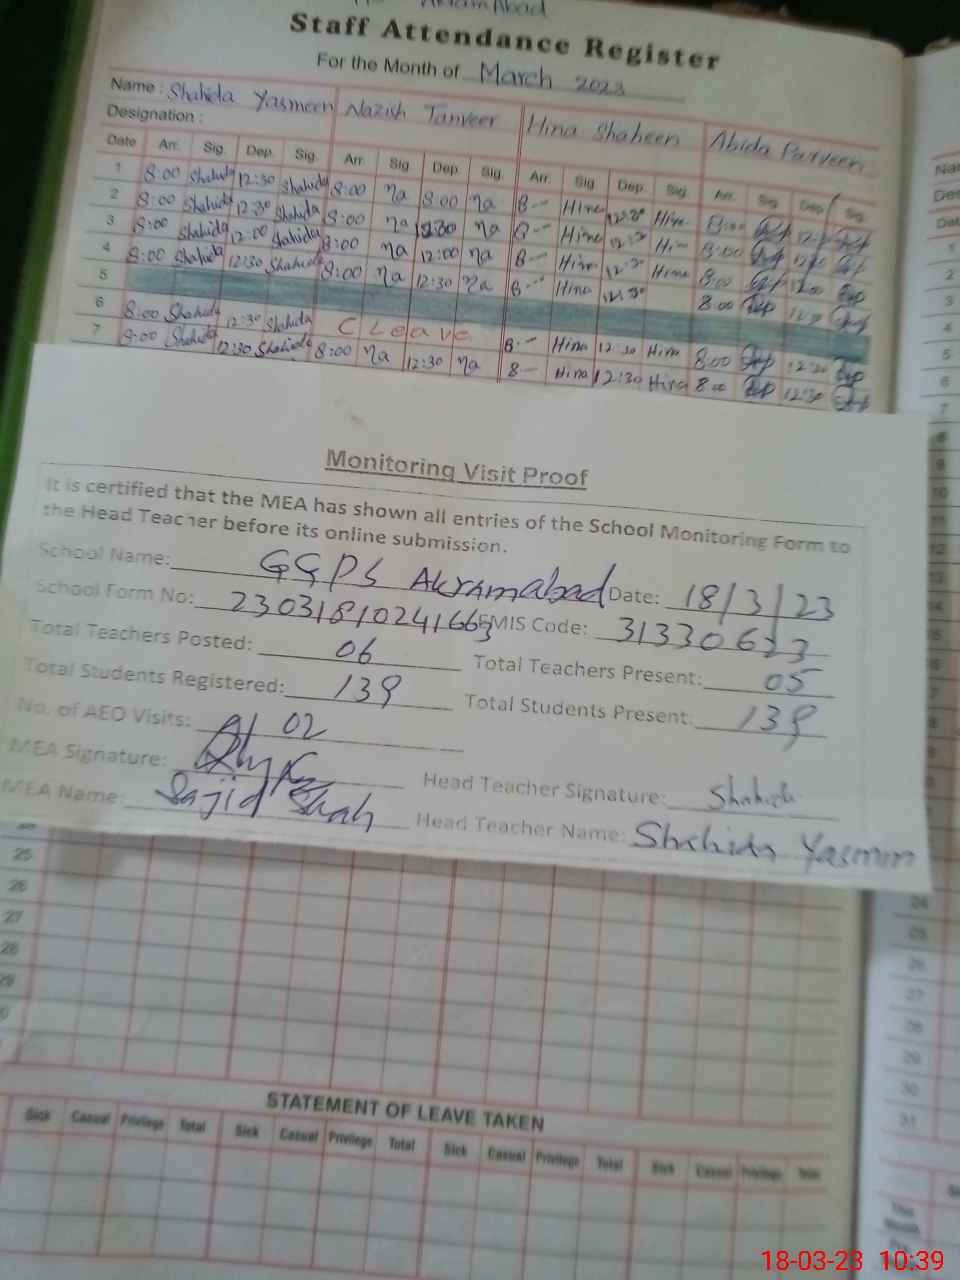 AkramAbad
Staff Attendance Register
For the Month of March 2023
Name: Shahida Yasmeen Nazish Tanveer Hina Shaheen Abida Parveen
Designation:
Date Arr. Sig. Dep. Sig. Arr. Sig. Dep. Sig. Arr. Sig. Dep. Sig. Arr. Sig. Dep. Sig.
1 8:00 Shahida 12:30 Shahida 8:00 Na 8:00 Na 8-- Hina 12:30 Hina 8:00
2 8:00 Shahida 12:30 Shahida 8:00 Na 12:30 Na 8-- Hina Hi- 8:00
3 8:00 Shahida 12:00 Shahida 8:00 Na 12:00 Na 8-- Hina Hina 8:00 12:00
4 8:00 Shahida 12:30 Shahida 8:00 Na 12:30 Na 8-- Hina 12:30 8:00
5
6 8:00 Shahida 12:30 Shahida C Leave 8:-- Hina 12:30 Hina 8:00 12:30
7 8:00 Shahida 12:30 Shahida 8:00 Na 12:30 Na 8-- Hina 12:30 Hina 8:00 12:30
Monitoring Visit Proof
It is certified that the MEA has shown all entries of the School Monitoring Form to
the Head Teacher before its online submission.
School Name: GGPS Akramabad Date: 18/3/23
School Form No: 23031810241663 EMIS Code: 31330623
Total Teachers Posted: 06 Total Teachers Present: 05
Total Students Registered: 139 Total Students Present: 139
No. of AEO Visits: 02
MEA Signature: Head Teacher Signature: Shahida
MEA Name: Sajid Shah Head Teacher Name: Shahida Yasmin
25
26
27
28
29
STATEMENT OF LEAVE TAKEN
Sick Casual Privilege Total Sick Casual Privilege Total Sick Casual Privilege Total Sick Casual Privilege Total
1
2
3
4
5
6
7
8
9
10
11
12
13
14
15
24
25
26
27
28
29
30
31
This
Month
18-03-23 10:39